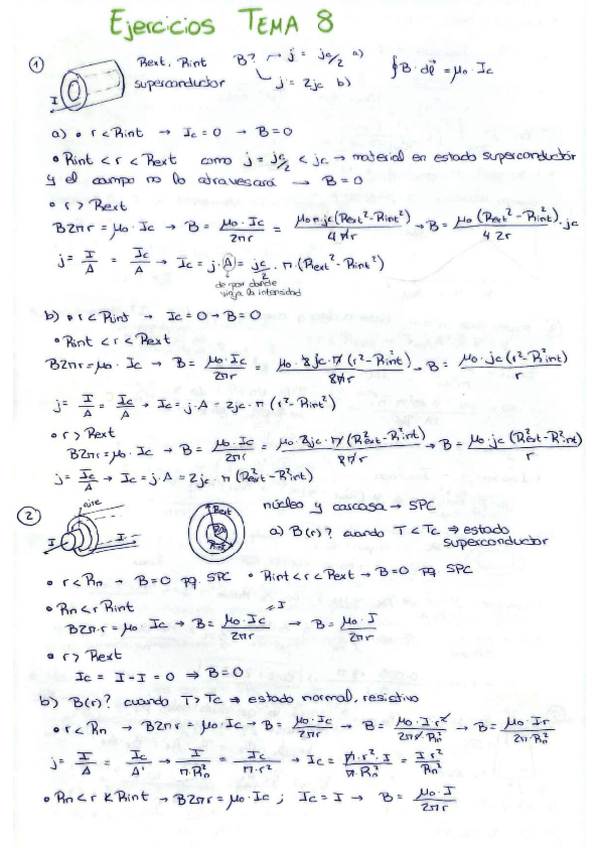 Ejercicios TEMA 8
① Rext, Rint B? → j = jc/2 a) ∮B·dl = μo·Ic
superconductor j = 2jc b)
I
a) • r < Rint → Ic = 0 → B = 0
• Rint < r < Rext como j = jc/2 < jc → material en estado superconductor
y el campo no lo atravesará → B = 0
• r > Rext
B2πr = μo·Ic → B = μo·Ic/2πr = μo π jc(Rext²-Rint²)/4πr → B = μo (Rext²-Rint²)/4 2r · jc
j = I/A = Ic/A → Ic = j·A = jc/2 · π·(Rext²-Rint²)
de por donde
viaja la intensidad
b) • r < Rint → Ic = 0 → B = 0
• Rint < r < Rext
B2πr = μo·Ic → B = μo·Ic/2πr = μo·2jc·π(r²-Rint²)/2πr → B = μo·jc(r²-Rint²)/r
j = I/A = Ic/A → Ic = j·A = 2jc·π(r²-Rint²)
• r > Rext
B2πr = μo·Ic → B = μo·Ic/2πr = μo·2jc·π(R²ext-R²int)/2πr → B = μo·jc(R²ext-R²int)/r
j = Ic/A → Ic = j·A = 2jc·π(R²ext-R²int)
② aire núcleo y carcasa → SPC
I I Rext Rn Rint a) B(r)? cuando T < Tc ⇒ estado
superconductor
• r < Rn → B = 0 pq SPC • Rint < r < Rext → B = 0 pq SPC
• Rn < r Rint
B2π·r = μo·Ic → B = μo·Ic/2πr = I → B = μo·I/2πr
• r > Rext
Ic = I - I = 0 ⇒ B = 0
b) B(r)? cuando T > Tc ⇒ estado normal, resistivo
• r < Rn → B2πr = μo·Ic → B = μo·Ic/2πr → B = μo·I·r²/2πr·Rn² → B = μo·Ir/2π·Rn²
j = I/A = Ic/A' → I/π·Rn² = Ic/π·r² → Ic = π·r²·I/π·Rn² = I r²/Rn²
• Rn < r < Rint → B2πr = μo·Ic ; Ic = I → B = μo·I/2πr